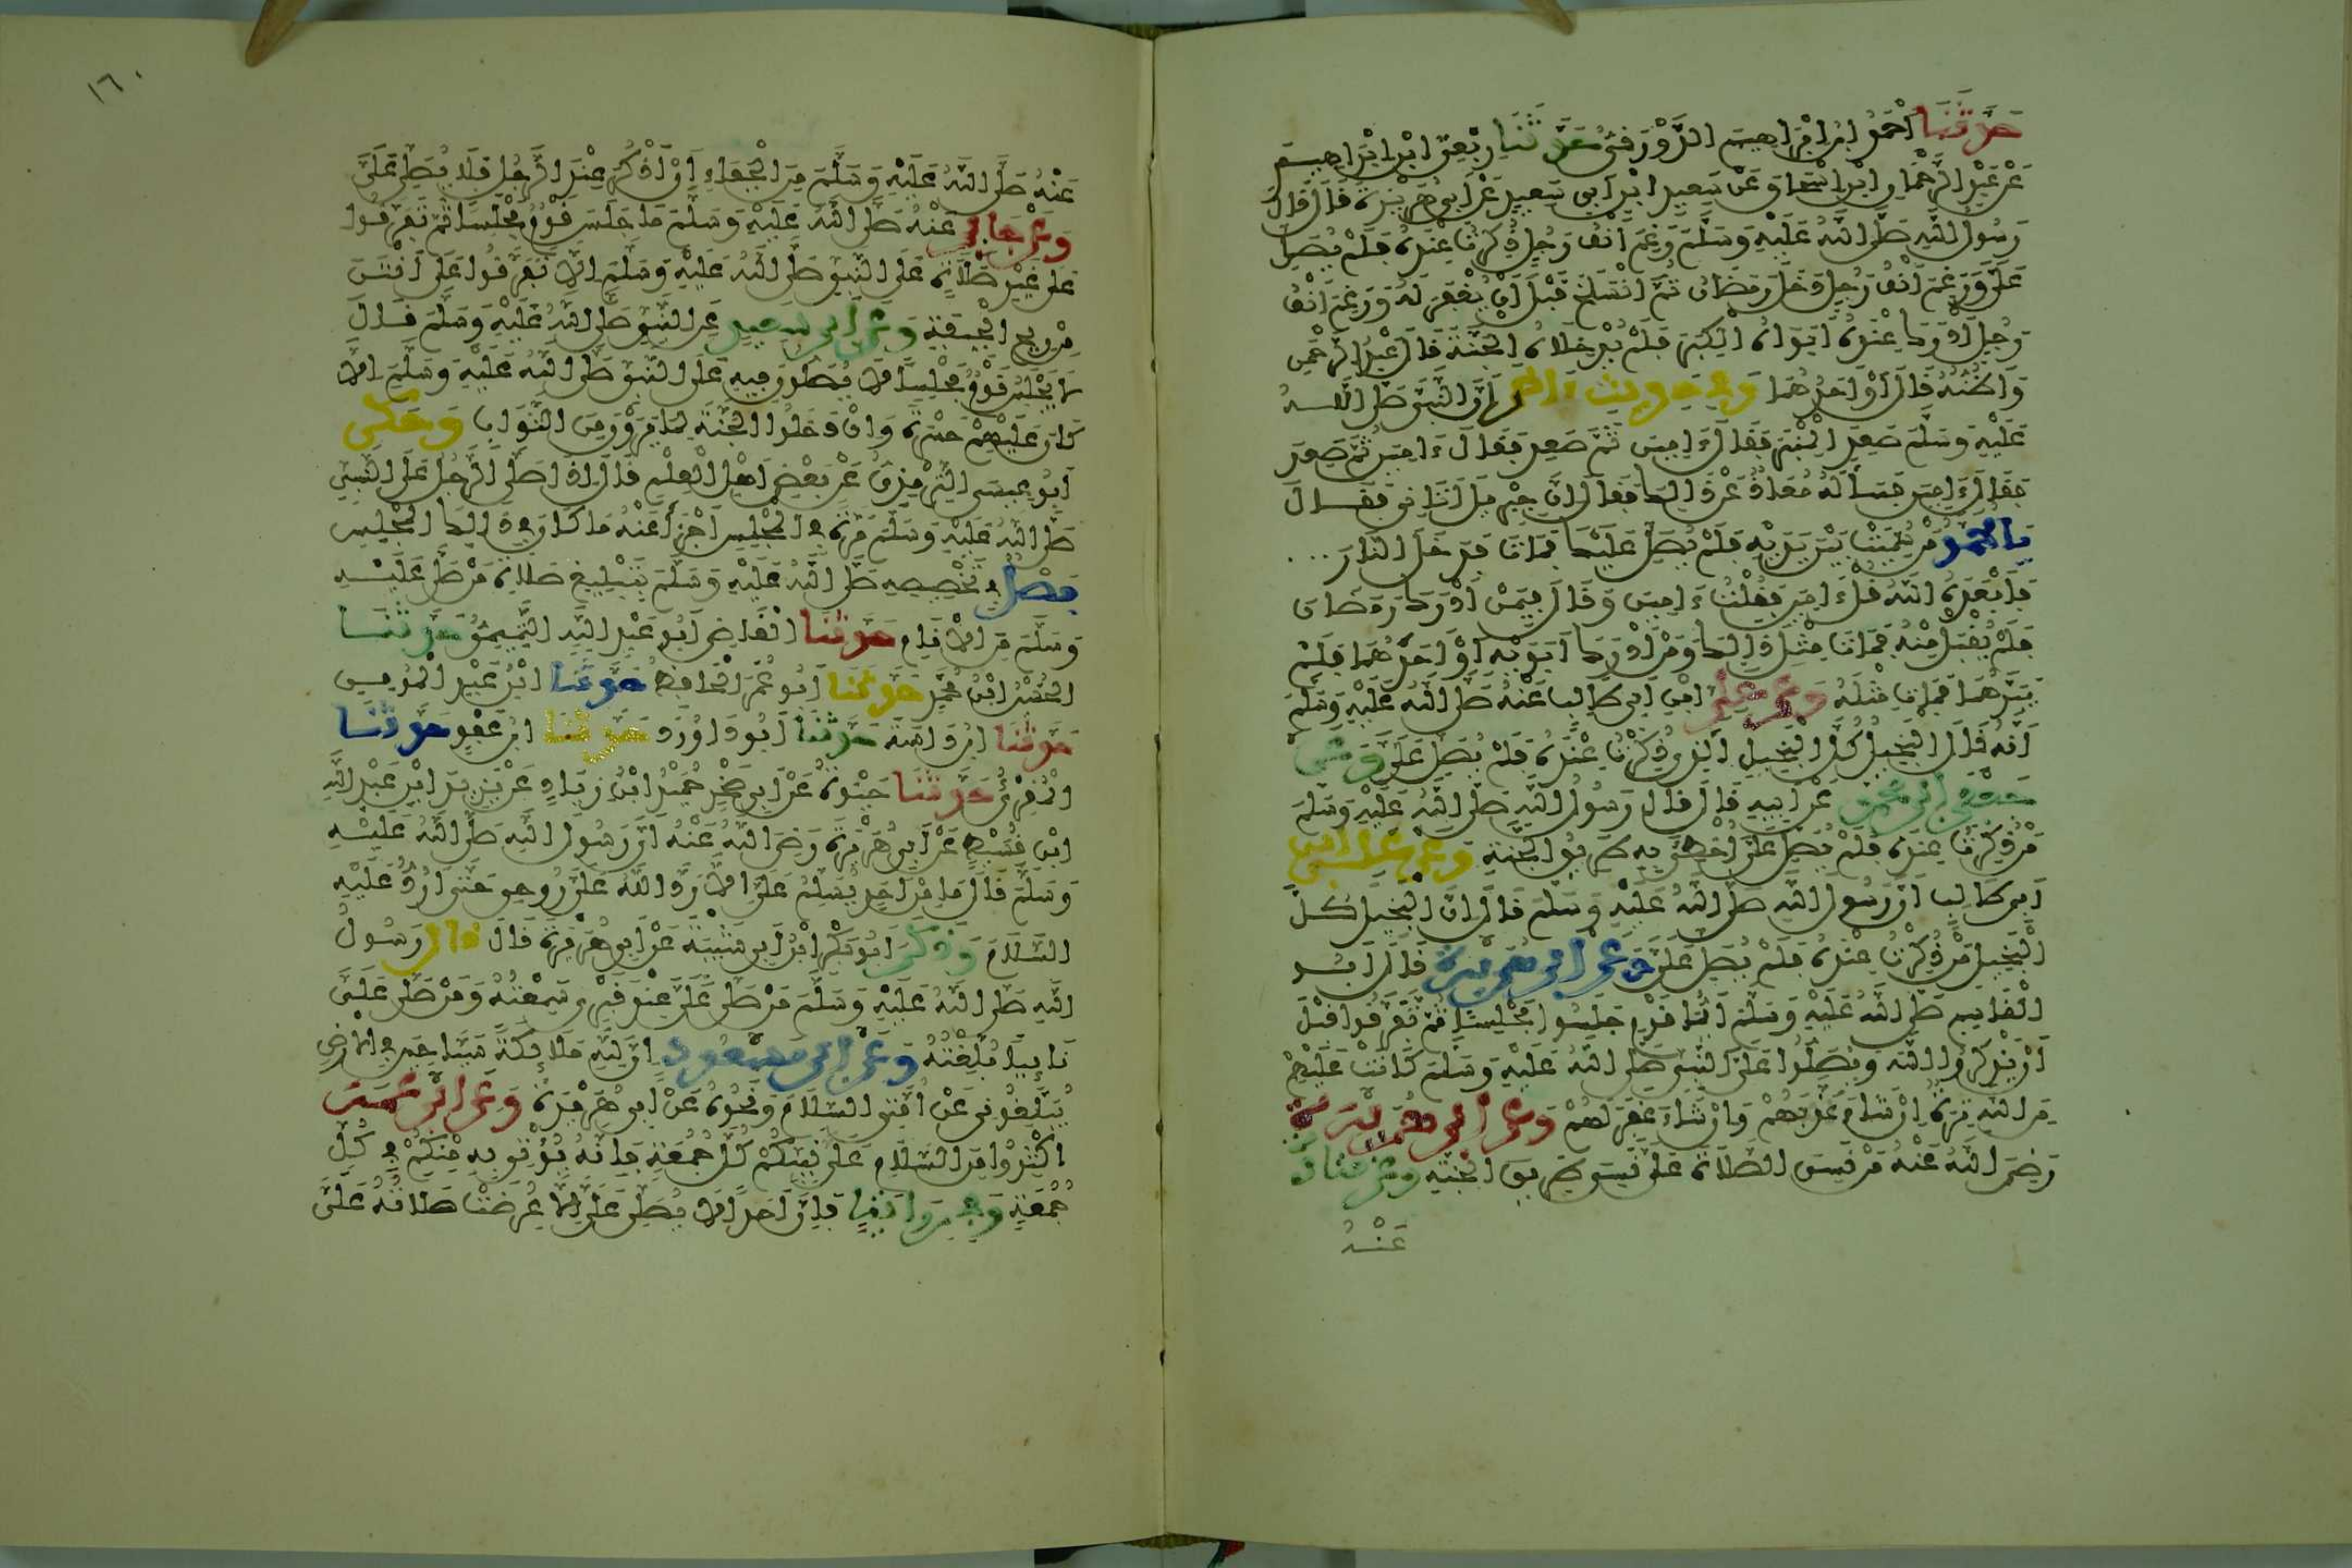 حَدَّثَنَا أَحْمَدُ ابْنُ إِبْرَاهِيمَ الدَّوْرَقِيُّ حَدَّثَنَا رِبْعِيُّ ابْنُ إِبْرَاهِيمَ
عَنْ عَبْدِ الرَّحْمَانِ ابْنِ إِسْحَاقَ عَنْ سَعِيدِ ابْنِ أَبِي سَعِيدٍ عَنْ أَبِي هُرَيْرَةَ قَالَ قَالَ
رَسُولُ اللَّهِ صَلَّى اللَّهُ عَلَيْهِ وَسَلَّمَ رَغِمَ أَنْفُ رَجُلٍ ذُكِرْتُ عِنْدَهُ فَلَمْ يُصَلِّ
عَلَيَّ وَرَغِمَ أَنْفُ رَجُلٍ دَخَلَ رَمَضَانُ ثُمَّ انْسَلَخَ قَبْلَ أَنْ يُغْفَرَ لَهُ وَرَغِمَ أَنْفُ
رَجُلٍ أَدْرَكَ عِنْدَهُ أَبَوَاهُ الْكِبَرَ فَلَمْ يُدْخِلَاهُ الْجَنَّةَ قَالَ عَبْدُ الرَّحْمَنِ
وَأَظُنُّهُ قَالَ أَوْ أَحَدُهُمَا وَفِي حَدِيثٍ ءَاخَرَ أَنَّ النَّبِيَّ صَلَّى اللَّهُ
عَلَيْهِ وَسَلَّمَ صَعِدَ الْمِنْبَرَ فَقَالَ ءَامِينَ ثُمَّ صَعِدَ فَقَالَ ءَامِينَ ثُمَّ صَعِدَ
فَقَالَ ءَامِينَ فَسَأَلَهُ مُعَاذٌ عَنْ ذَالِكَ فَقَالَ إِنَّ جِبْرِيلَ أَتَانِي فَقَالَ
يَا مُحَمَّدُ مَنْ سُمِّيتَ بَيْنَ يَدَيْهِ فَلَمْ يُصَلِّ عَلَيْكَ فَمَاتَ فَدَخَلَ النَّارَ ...
فَأَبْعَدَهُ اللَّهُ قُلْ ءَامِينَ فَقُلْتُ ءَامِينَ وَقَالَ فِيمَنْ أَدْرَكَ رَمَضَانَ
فَلَمْ يُقْبَلْ مِنْهُ فَمَاتَ مِثْلَ ذَالِكَ وَمَنْ أَدْرَكَ أَبَوَيْهِ أَوْ أَحَدَهُمَا فَلَمْ
يَبَرَّهُمَا فَمَاتَ مِثْلَهُ وَعَنْ عَلِيِّ ابْنِ أَبِي طَالِبٍ عَنْهُ صَلَّى اللَّهُ عَلَيْهِ وَسَلَّمَ
أَنَّهُ قَالَ الْبَخِيلُ كُلُّ الْبَخِيلِ الَّذِي ذُكِرْتُ عِنْدَهُ فَلَمْ يُصَلِّ عَلَيَّ وَعَنْ
جَعْفَرِ ابْنِ مُحَمَّدٍ عَنْ أَبِيهِ قَالَ قَالَ رَسُولُ اللَّهِ صَلَّى اللَّهُ عَلَيْهِ وَسَلَّمَ
مَنْ ذُكِرْتُ عِنْدَهُ فَلَمْ يُصَلِّ عَلَيَّ أُخْطِئَ بِهِ طَرِيقُ الْجَنَّةِ وَعَنْ عَلِيِّ ابْنِ
أَبِي طَالِبٍ أَنَّ رَسُولَ اللَّهِ صَلَّى اللَّهُ عَلَيْهِ وَسَلَّمَ قَالَ إِنَّ الْبَخِيلَ كُلَّ
الْبَخِيلِ مَنْ ذُكِرْتُ عِنْدَهُ فَلَمْ يُصَلِّ عَلَيَّ وَعَنْ أَبِي هُرَيْرَةَ قَالَ أَبُو
الْقَاسِمِ صَلَّى اللَّهُ عَلَيْهِ وَسَلَّمَ أَيُّمَا قَوْمٍ جَلَسُوا مَجْلِسًا ثُمَّ تَفَرَّقُوا قَبْلَ
أَنْ يَذْكُرُوا اللَّهَ وَيُصَلُّوا عَلَى النَّبِيِّ صَلَّى اللَّهُ عَلَيْهِ وَسَلَّمَ كَانَتْ عَلَيْهِمْ
مِنَ اللَّهِ تِرَةٌ إِنْ شَاءَ عَذَّبَهُمْ وَإِنْ شَاءَ غَفَرَ لَهُمْ وَعَنْ أَبِي هُرَيْرَةَ
رَضِيَ اللَّهُ عَنْهُ مَنْ نَسِيَ الصَّلَاةَ عَلَيَّ نَسِيَ طَرِيقَ الْجَنَّةِ وَعَنْ قَتَادَةَ
عَنْهُ
١٦٠
عَنْهُ صَلَّى اللَّهُ عَلَيْهِ وَسَلَّمَ مِنَ الْجَفَاءِ أَنْ أُذْكَرَ عِنْدَ الرَّجُلِ فَلَا يُصَلِّي عَلَيَّ
وَعَنْ جَابِرٍ عَنْهُ صَلَّى اللَّهُ عَلَيْهِ وَسَلَّمَ مَا جَلَسَ قَوْمٌ مَجْلِسًا ثُمَّ تَفَرَّقُوا
عَلَى غَيْرِ صَلَاةٍ عَلَى النَّبِيِّ صَلَّى اللَّهُ عَلَيْهِ وَسَلَّمَ إِلَّا تَفَرَّقُوا عَلَى أَنْتَنَ
مِنْ رِيحِ الْجِيفَةِ وَعَنْ أَبِي سَعِيدٍ عَنِ النَّبِيِّ صَلَّى اللَّهُ عَلَيْهِ وَسَلَّمَ قَالَ
لَا يَجْلِسُ قَوْمٌ مَجْلِسًا لَا يُصَلُّونَ فِيهِ عَلَى النَّبِيِّ صَلَّى اللَّهُ عَلَيْهِ وَسَلَّمَ إِلَّا
كَانَ عَلَيْهِمْ حَسْرَةً وَإِنْ دَخَلُوا الْجَنَّةَ لِمَا يَرَوْنَ مِنَ الثَّوَابِ وَحَكَى
أَبُو عِيسَى التِّرْمِذِيُّ عَنْ بَعْضِ أَهْلِ الْعِلْمِ قَالَ إِذَا صَلَّى الرَّجُلُ عَلَى النَّبِيِّ
صَلَّى اللَّهُ عَلَيْهِ وَسَلَّمَ مَرَّةً فِي الْمَجْلِسِ أَجْزَأَ عَنْهُ مَا كَانَ فِي ذَالِكَ الْمَجْلِسِ
فَصْلٌ فِي تَخْصِيصِهِ صَلَّى اللَّهُ عَلَيْهِ وَسَلَّمَ بِتَبْلِيغِ صَلَاةِ مَنْ صَلَّى عَلَيْهِ
وَسَلَّمَ مِنَ الْأَنَامِ حَدَّثَنَا الْقَاضِي أَبُو عَبْدِ اللَّهِ التَّمِيمِيُّ حَدَّثَنَا
الْحُسَيْنُ ابْنُ مُحَمَّدٍ حَدَّثَنَا أَبُو عُمَرَ الْحَافِظُ حَدَّثَنَا ابْنُ عَبْدِ الْمُومِنِ
حَدَّثَنَا ابْنُ دَاسَةَ حَدَّثَنَا أَبُو دَاوُودَ حَدَّثَنَا ابْنُ عَوْفٍ حَدَّثَنَا
الْمُقْرِئُ حَدَّثَنَا حَيْوَةُ عَنْ أَبِي صَخْرٍ حُمَيْدِ ابْنِ زِيَادٍ عَنْ يَزِيدَ ابْنِ عَبْدِ اللَّهِ
ابْنِ قُسَيْطٍ عَنْ أَبِي هُرَيْرَةَ رَضِيَ اللَّهُ عَنْهُ أَنَّ رَسُولَ اللَّهِ صَلَّى اللَّهُ عَلَيْهِ
وَسَلَّمَ قَالَ مَا مِنْ أَحَدٍ يُسَلِّمُ عَلَيَّ إِلَّا رَدَّ اللَّهُ عَلَيَّ رُوحِي حَتَّى أَرُدَّ عَلَيْهِ
السَّلَامَ وَذَكَرَ أَبُو بَكْرِ ابْنُ أَبِي شَيْبَةَ عَنْ أَبِي هُرَيْرَةَ قَالَ قَالَ رَسُولُ
اللَّهِ صَلَّى اللَّهُ عَلَيْهِ وَسَلَّمَ مَنْ صَلَّى عَلَيَّ عِنْدَ قَبْرِي سَمِعْتُهُ وَمَنْ صَلَّى عَلَيَّ
نَائِيًا بُلِّغْتُهُ وَعَنِ ابْنِ مَسْعُودٍ إِنَّ لِلَّهِ مَلَائِكَةً سَيَّاحِينَ فِي الْأَرْضِ
يُبَلِّغُونِي عَنْ أُمَّتِي السَّلَامَ وَنَحْوُهُ عَنْ أَبِي هُرَيْرَةَ وَعَنِ ابْنِ عُمَرَ
أَكْثِرُوا مِنَ السَّلَامِ عَلَى نَبِيِّكُمْ كُلَّ جُمُعَةٍ فَإِنَّهُ يُؤْتَى بِهِ مِنْكُمْ فِي كُلِّ
جُمُعَةٍ وَفِي رِوَايَةٍ فَإِنَّ أَحَدًا لَا يُصَلِّي عَلَيَّ إِلَّا عُرِضَتْ صَلَاتُهُ عَلَيَّ